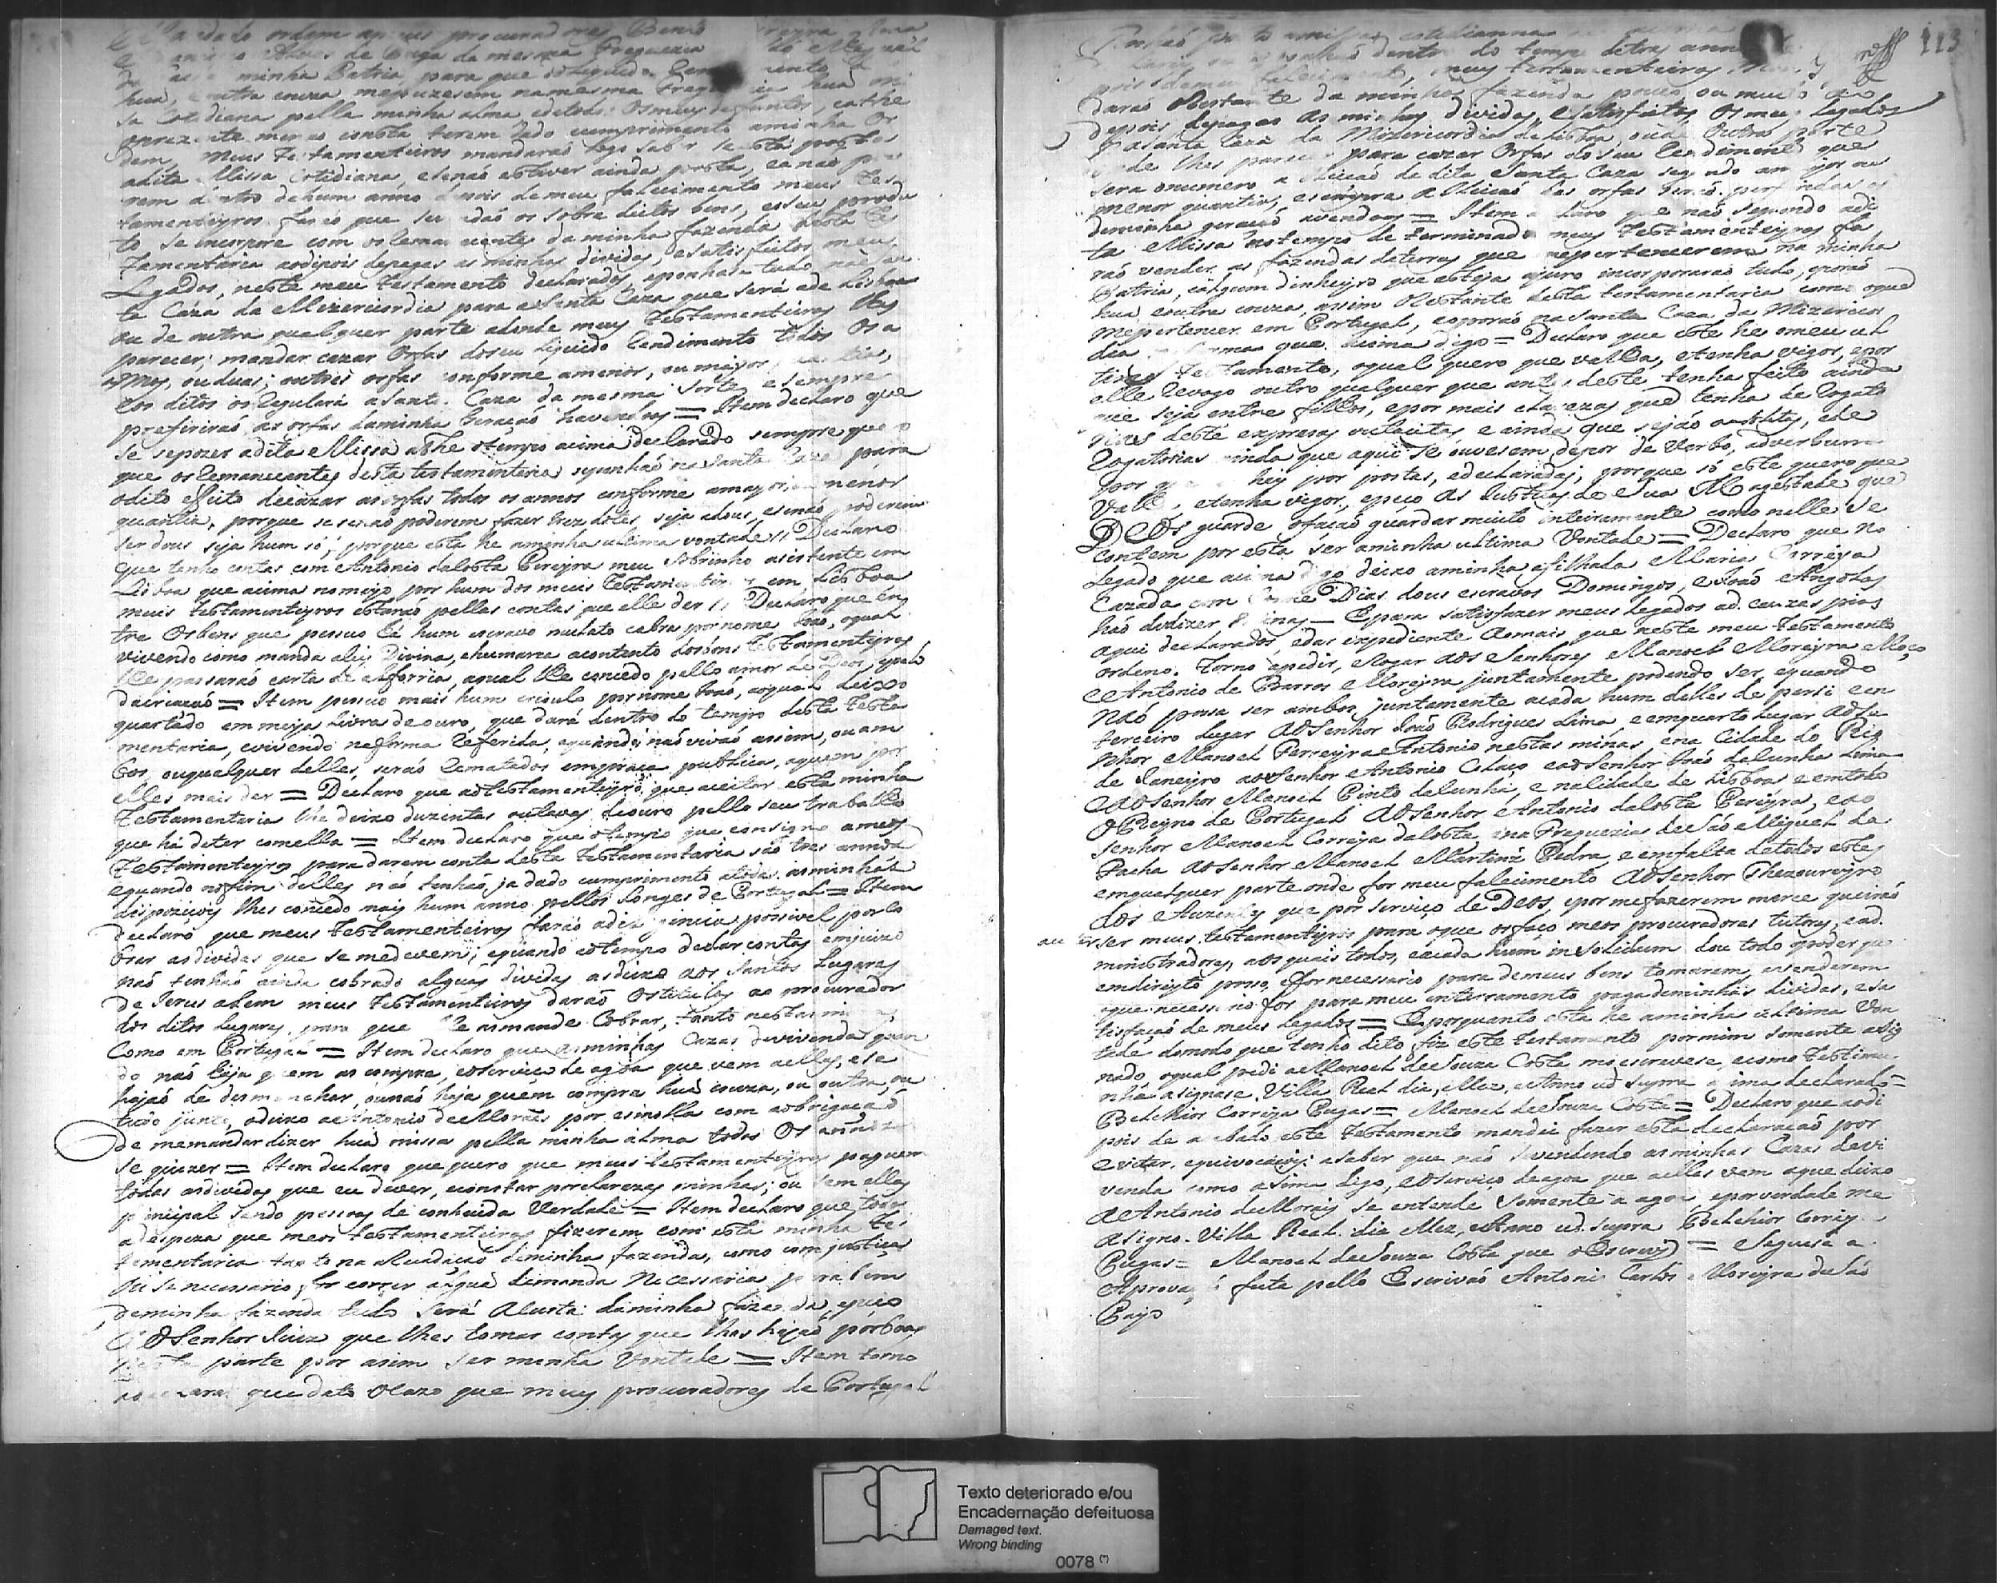 dado ordem a meus procuradores Bento
de Braga da mesma Freguezia Miguel
minha Patria para que do liquido
hua, e outra couza mepuzesem namesma Freguezia hua
sa Cotidiana pella minha alma edetodos os meus defuntos, eathe
oprezente menaõ consta terem dado cumprimento aminha or
dem, meus testamenteiros mandaraõ logo saber se está posta
adita Missa Cotidiana, esenaõ estiver ainda posta, eanaõ
rem dentro dehum anno depois demeu falecimento meus tes
tamenteyros faraõ que sevendaõ os sobre ditos bens, eoseu produ
to se incorpore com os remanecentes daminha fazenda desta tes
tamentaria aodipois depagas as minhas dividas, esatisfeitos meus
Legados, neste meu testamento declarados, eponhase tudo na San
ta Caza da Mizericordia para aSanta Caza que será ade Lisboa
ou de outra qualquer parte adonde meus Testamenteiros lhes
parecer, mandar cazar orfas doseu liquido Rendimento todos os a
nnos, ouduas; outres orfas conforme amenor, ou mayor quantia,
eos ditos os regulará aSanta Caza da mesma sorte, esempre
prefiriraõ as orfas daminha Geraçaõ havendoas = Item declaro que
se sepozer adita Missa athe otempo acima declarado sempre quero
que os Remanecentes desta testamenteria seponhaõ na Santa Caza para
odito effeito decazar as orfas todos os annos conforme amayor, ou menor
quantia, porque sesenaõ poderem fazer trez dotes, seja adous, esenaõ poderem
ser dous seja hum só; porque esta he aminha ultima vontade = Declaro
que tenho contas com Antonio daCosta Pereyra meu sobrinho asistente em
Lisboa que acima nomeyo por hum dos meus Testamenteiros em Lisboa
meus testamenteyros estaraõ pellas contas que elle der = Declaro que en
tre osbens que possuo hé hum escravo mulato cabra por nome Joaõ, oqual
vivendo como manda aley Divina, ehumana acontento dosdous Testamenteyros
lhe passaraõ carta de alforria, aqual lhe concedo pello amor de Deos, epela
dacriaçaõ = Item possuo mais hum crioulo por nome Joaõ, aoqual deixo
quartado em meya livra de ouro, que dará dentro do tempo desta testa
mentaria, evivendo naforma referida, aquando naõ vivaõ assim, ou am
bos, ouqualquer delles, seraõ Rematados empraça publica, aquem por
elles mais der = Declaro que aotestamenteyro, que aceitar esta minha
testamentaria lhe deixo duzentas outavas deouro pello seu trabalho
que há deter comella = Item declaro que otempo que consigno ameos
Testamenteyros para darem conta desta Testamentaria saõ tres annos
equando nofim delles naõ tenhaõ ja dado cumprimento atodas asminhas
dispoziçoẽs lhes concedo mais hum anno pellos Longes de Portugal = Item
declaro que meus testamenteiros faraõ adiligencia possivel por Co
brar as dividas que se medevem; equando aotempo dedar contas emjuizo
naõ tenhaõ ainda cobrado alguãs dividas asdeixo aos Santos Lugares
de Jerusalem meus testamenteiros daraõ ostitulos ao procurador
dos ditos lugares, para que as mande Cobrar, tanto nestas minas,
como em Portugal = Item declaro que asminhas Cazas devivenda quan
do naõ haja quem as compre, eoserviço de agoa que vem aellas, ese
hajaõ de desmanchar, ounaõ haja quem compre huã couza, ou outra, ou
tudo junto, odeixo aAntonio deMoraes por esmolla com aobrigaçaõ
de memandar dizer huã missa pella minha alma todos os annos
se quizer = Item declaro que quero que meus testamenteyros paguem
todas asdividas que eu dever, econstar porclarezas minhas; ou sem ellas
principal sendo pessoas de conhecida verdade = Item declaro que toda
adespeza que meos testamenteiros fizerem com esta minha tes
tamentaria tanto na aRecadaçaõ deminha fazenda, como com justiças
se necessario for correr alguã demanda necessaria, para bem
deminha fazenda tudo será acusta daminha fazenda, epeço
aoSenhor Juiz que lhes tomar contas que lhas hajaõ por boas
nesta parte por asim ser minha vontade = Item torno
adeclarar que dado ocazo que meus procuradores de Portugal
113
tenhaõ posto amissa cotidianna
dentro do tempo detres annos
pois demeu falecimento, meus testamenteiros
daraõ oRestante da minha fazenda pouca ou muita ao
depois depagas as minhas dividas, esatisfeitos os meus legados
aSanta Caza da Mizericordia de Lisboa, ouda outra parte
onde lhes parecer para cazar orfas doseu Rendimento que
sera onumero a eleicaõ dadita Santa Caza segundo amayor ou
menor quantia, esempre aelleicaõ das orfas seraõ preferidas as
deminha geracaõ avendoas = Item declaro que naõ sepondo adi
ta Missa notempo determinado meus testamenteyros fa
raõ vender as fazendas daterras que mepertencerem na minha
Patria, ealgum dinheyro que esteja ajuro incorporaraõ tudo, eporaõ
hua, eoutra couza, assim oRestante desta testamentaria como oque
mepertencer em Portugal, eoporaõ na Santa Caza da Mizericor
dia naforma que acima digo = Declaro que este he omeu ul
timo testamento, oqual quero que valha, etenha vigor, epor
elle revogo outro qualquer que antes deste tenha feito ainda
que seja entre filhos, epor mais clarezas que tenha derogato
rias deste expresas outacitas e ainda que sejaõ asditas, ede
Rogatorias ainda que aqui se ouvesem depor de verbo, adverbum
por que hey por postas, edeclaradas, porque só este quero que
valha, etenha vigor, epeço as Justiças de Sua Magestade que
DEos guarde ofaçaõ guardar muito inteiramente como nelle se
contem por esta ser aminha ultima vontade = Declaro que no
Legado que acima digo deixo aminha afilhada Maria Correya
Cazada com Dias dous escravos Domingos, eJoaõ Angolas
haõ dedizer Minas = Epara satisfazer meus legados ad cauzas pias
aqui declarados, edar expediente aomais que neste meu testamento
ordeno. Torno apedir, eRogar aos Senhores Manoel Moreyra Moço
eAntonio de Barros Moreyra juntamente podendo ser, equando
naõ possa ser ambos juntamente acada hum delles de persi een
terceiro lugar aoSenhor Joaõ Rodrigues Lima, eemquarto lugar aoSe
nhor Manoel Ferreyra eAntonio nestas minas, ena Cidade do Rio
de Janeyro aoSenhor Antonio Colaço eaoSenhor Joaõ daCunha Lima
eaoSenhor Manoel Pinto daCunha, e naCidade de Lisboa e emtodo
oReyno de Portugal aoSenhor Antonio daCosta Pereyra, eao
Senhor Manoel Correya daCosta, ena Freguezia deSaõ Miguel da
Facha aoSenhor Manoel Martins Pedra, eemfalta detodos estes
emqualquer parte onde for meu falecimento aoSenhor Thezoureyro
dos Auzentes que por serviço de Deos, epor mefazerem merce queiraõ
ser meus testamenteyros para oque osfaço meos procuradores tutores, ead
ministradores, aos quais todos, eacada hum in solidum dou todo opoder que
emdireyto posso, efor necessario para demeus bens tomarem, evenderem
oque necessario for para meu enterramento pagademinhas dividas, esa
tisfaçaõ de meus legados = Eporquanto esta he aminha ultima Von
tade domodo que tenho dito, fiz este testamento pormim somente asig
nado, oqual pedi aManoel deSouza Costa moescrevese, ecomo testemu
nha asignase. Villa Real dia, eMez, eAnno ud supra acima declarado =
Belchior Correya Bugas = Manoel deSouza Costa = Declaro que aodi
pois de acabado este testamento mandei fazer esta declaraçaõ por
evitar equivocaçoẽs asaber que naõ sevendendo asminhas Cazas devi
venda como asima digo, eoserviço deagoa que aellas vem aque deixo
aAntonio deMorais se entende somente a agoa, eporverdade me
asigno. Villa Real dia Mez, eAnno ud supra Belchior Correya
Bugas = Manoel deSouza Costa que oEscrevy = Seguese a
Aprovaçaõ feita pello Escrivaõ Antonio Carlos Moreyra deSaõ
Payo
Texto deteriorado e/ou
Encadernação defeituosa
Damaged text.
Wrong binding
0078 (*)